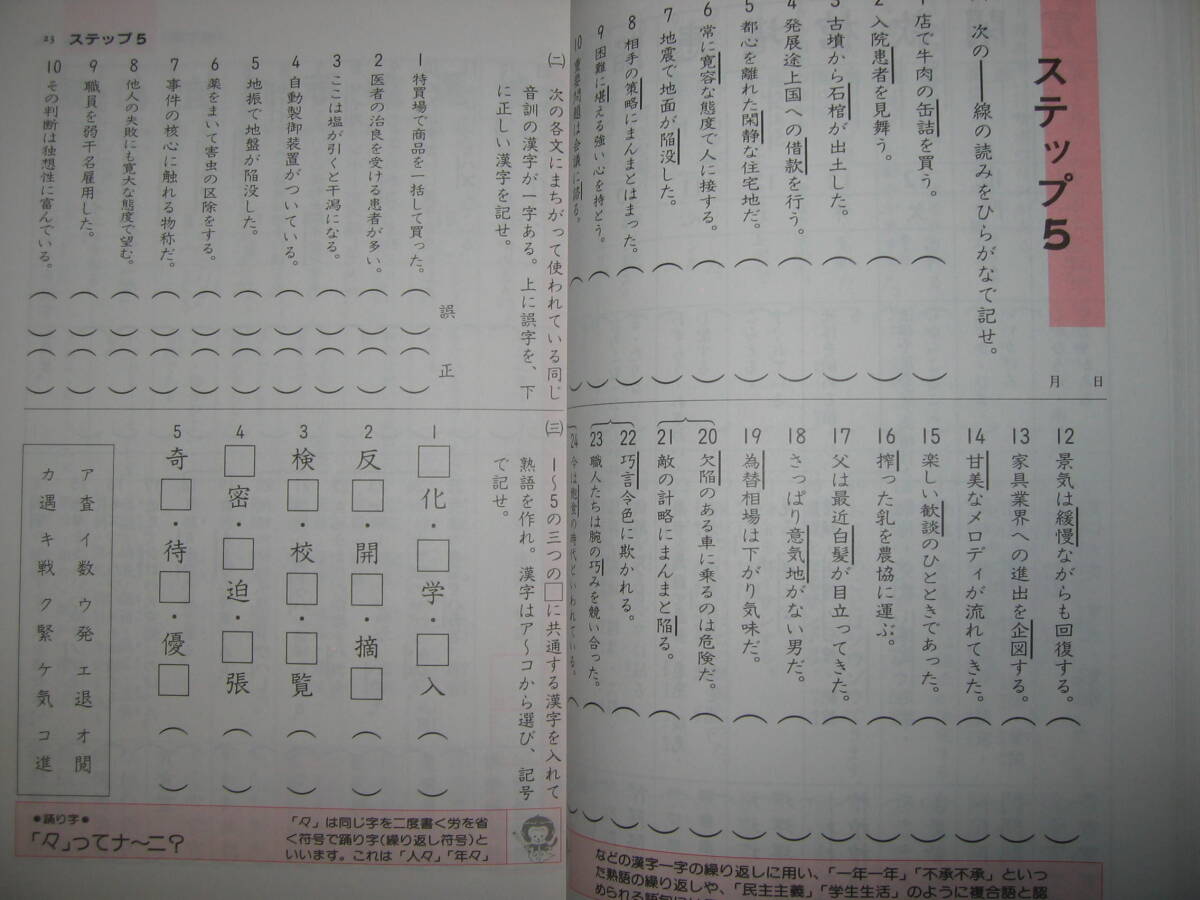 ステップ5
月 日
次の――線の読みをひらがなで記せ。
1 店で牛肉の缶詰を買う。
2 入院患者を見舞う。
3 古墳から石棺が出土した。
4 発展途上国への借款を行う。
5 都心を離れた閑静な住宅地だ。
6 常に寛容な態度で人に接する。
7 地震で地面が陥没した。
8 相手の策略にまんまとはまった。
9 困難に堪える強い心を持とう。
10 重要問題は会議に
12 景気は緩慢ながらも回復する。
13 家具業界への進出を企図する。
14 甘美なメロディが流れてきた。
15 楽しい歓談のひとときであった。
16 搾った乳を農協に運ぶ。
17 父は最近白髪が目立ってきた。
18 さっぱり意気地がない男だ。
19 為替相場は下がり気味だ。
20 欠陥のある車に乗るのは危険だ。
21 敵の計略にまんまと陥る。
22 巧言令色に欺かれる。
23 職人たちは腕の巧みを競い合った。
24 今は飽食の時代といわれている。
などの漢字一字の繰り返しに用い、「一年一年」「不承不承」といっ
た熟語の繰り返しや、「民主主義」「学生生活」のように複合語と認
められる語句には
23 ステップ5
(二) 次の各文にまちがって使われている同じ
音訓の漢字が一字ある。上に誤字を、下
に正しい漢字を記せ。
誤 正
1 特買場で商品を一括して買った。
2 医者の治良を受ける患者が多い。
3 ここは塩が引くと干潟になる。
4 自動製御装置がついている。
5 地振で地盤が陥没した。
6 薬をまいて害虫の区除をする。
7 事件の核心に触れる物称だ。
8 他人の失敗にも寛大な態度で望む。
9 職員を弱干名雇用した。
10 その判断は独想性に富んでいる。
(三) 1～5の三つの□に共通する漢字を入れて
熟語を作れ。漢字はア～コから選び、記号
で記せ。
1 □化・□学・□入
2 反□・開□・摘□
3 検□・校□・□覧
4 □密・□迫・□張
5 奇□・待□・優□
ア 査 イ 数 ウ 発 エ 退 オ 閲
カ 遇 キ 戦 ク 緊 ケ 気 コ 進
●踊り字●
「々」ってナ～ニ?
「々」は同じ字を二度書く労を省
く符号で踊り字(繰り返し符号)と
いいます。これは「人々」「年々」